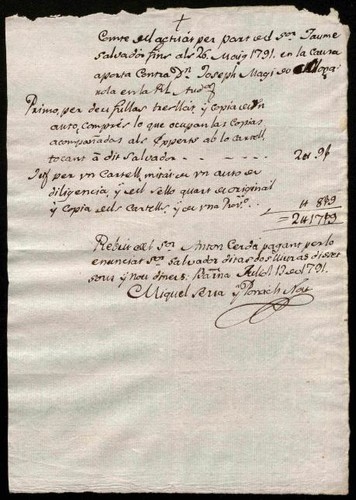 +
Comte del actuát per part del Sor. Jaume
Salvadór fins als 26. Maig 1791. en la Causa
aporta Contra Dn. Joseph Magí de
en la Rl. Auda.
Primo per deu fullas tresllat, y copia de un
auto, comprés lo que ocupan las Copias
acompañadas als Experts ab lo Cartell
tocant á dit Salvador
Itt. per un Cartell, mitat de un auto de
diligencia, y del sello quart de original
y Copia del Cartell, y de una
Rebut del Sr. Anton Cerdá pagant per lo
enunciat Sor. Salvador ditas dos lliuras diset
sous y nou diners. Barna. Juliol 12 de 1791.
Miquel Serra y Not.